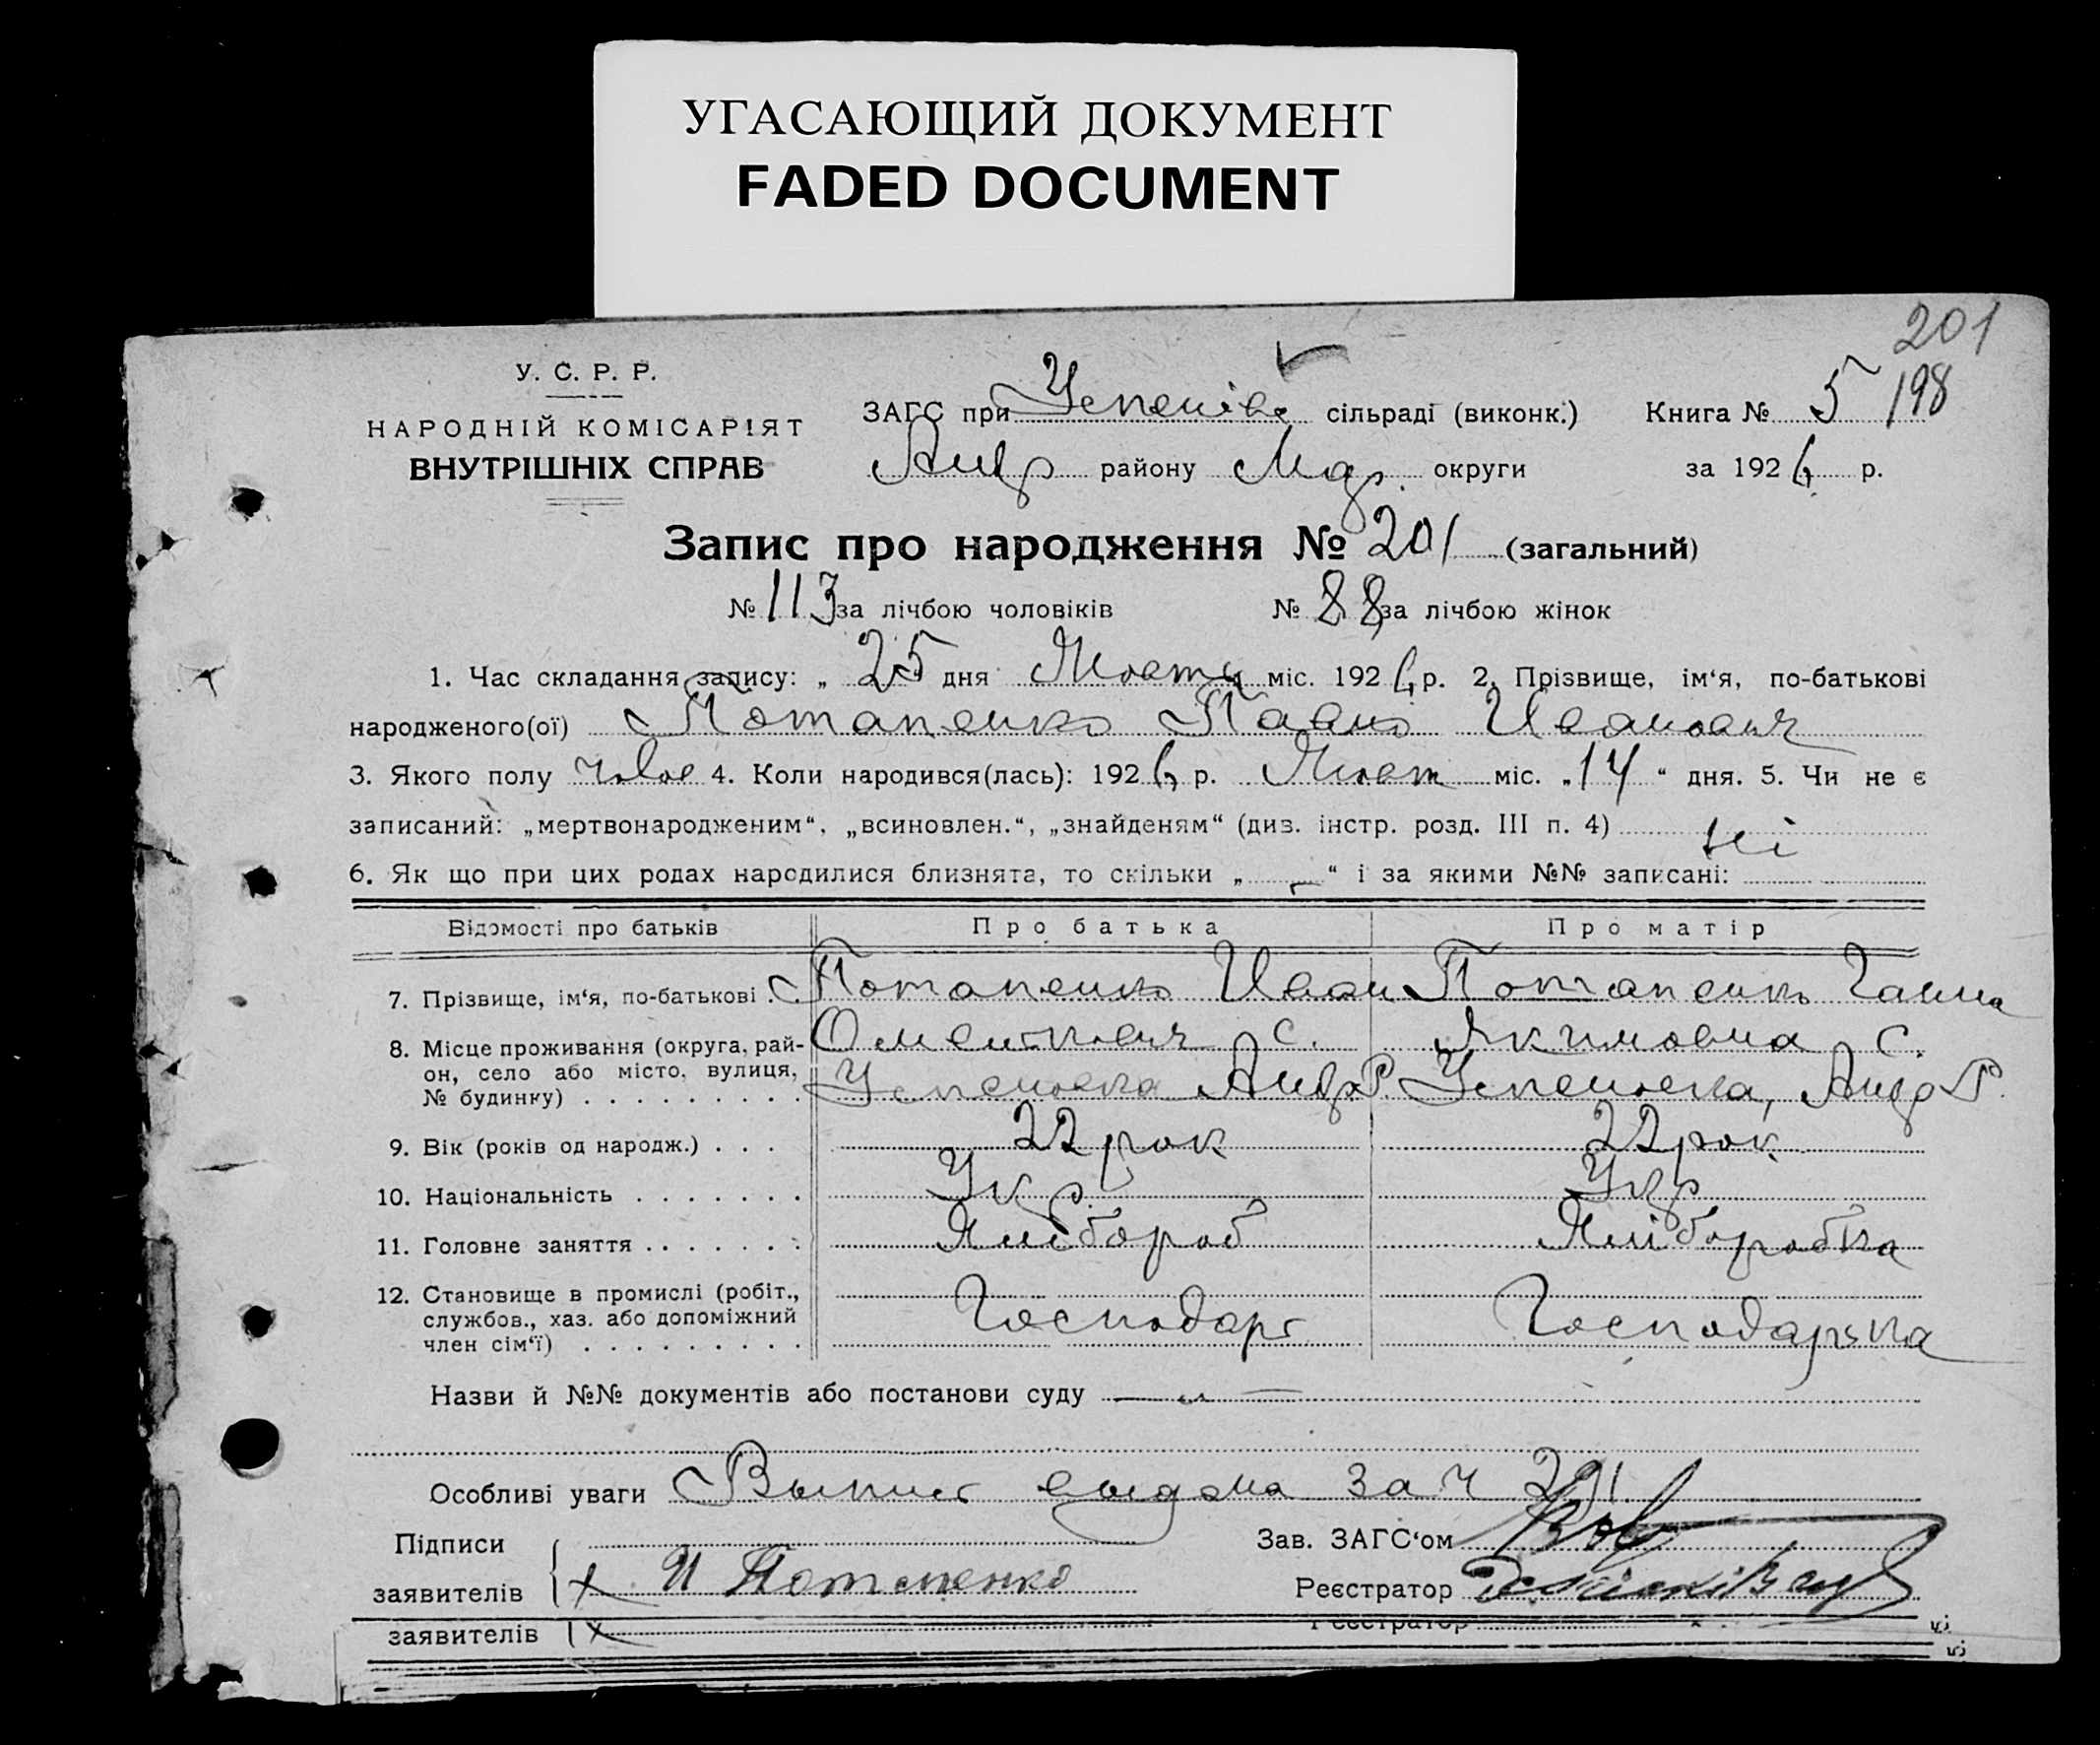 УГАСАЮЩИЙ ДОКУМЕНТ
FADED DOCUMENT
201
198
У. С. Р. Р.
НАРОДНІЙ КОМІСАРІЯТ
ВНУТРІШНІХ СПРАВ
ЗАГС при Успенівс сільраді (виконк.) Книга № 5
Андр району Мар. округи за 1926 р.
Запис про народження № 201 (загальний)
№ 113 за лічбою чоловіків № 88 за лічбою жінок
1. Час складання запису: „ 25 дня міс. 1926 р. 2. Прізвище, ім‘я, по-батькові
народженого(ої) Потапенко Павло Иванович
3. Якого полу чолов 4. Коли народився(лась): 1926 р. міс. „14“ дня. 5. Чи не є
записаний: „мертвонародженим“, „всиновлен.“, „знайденям“ (див. інстр. розд. III п. 4) ні
6. Як що при цих родах народилися близнята, то скільки „ — “ і за якими №№ записані:
Відомості про батьків Про батька Про матір
7. Прізвище, ім‘я, по-батькові . Потапенко Иван Потапенко Ганна
8. Місце проживання (округа, рай- с. Якимовна с.
он, село або місто, вулиця, Успеновка Андр Р. Успеновка, Андр Р.
№ будинку) . . . . . . . . .
9. Вік (років од народж.) . . . 22 рок 22 рок
10. Національність . . . . . . . Укр. Укр
11. Головне заняття . . . . . . . Хлібороб Хліборобка
12. Становище в промислі (робіт.,
службов., хаз. або допоміжний Господарь Господарька
член сім‘ї) . . . . . . . . .
Назви й №№ документів або постанови суду — „ —
Особливі уваги Выпись выдана за ч 201.
Підписи Зав. ЗАГС‘ом
заявителів И Потапенко Реєстратор
заявителів Реєстратор